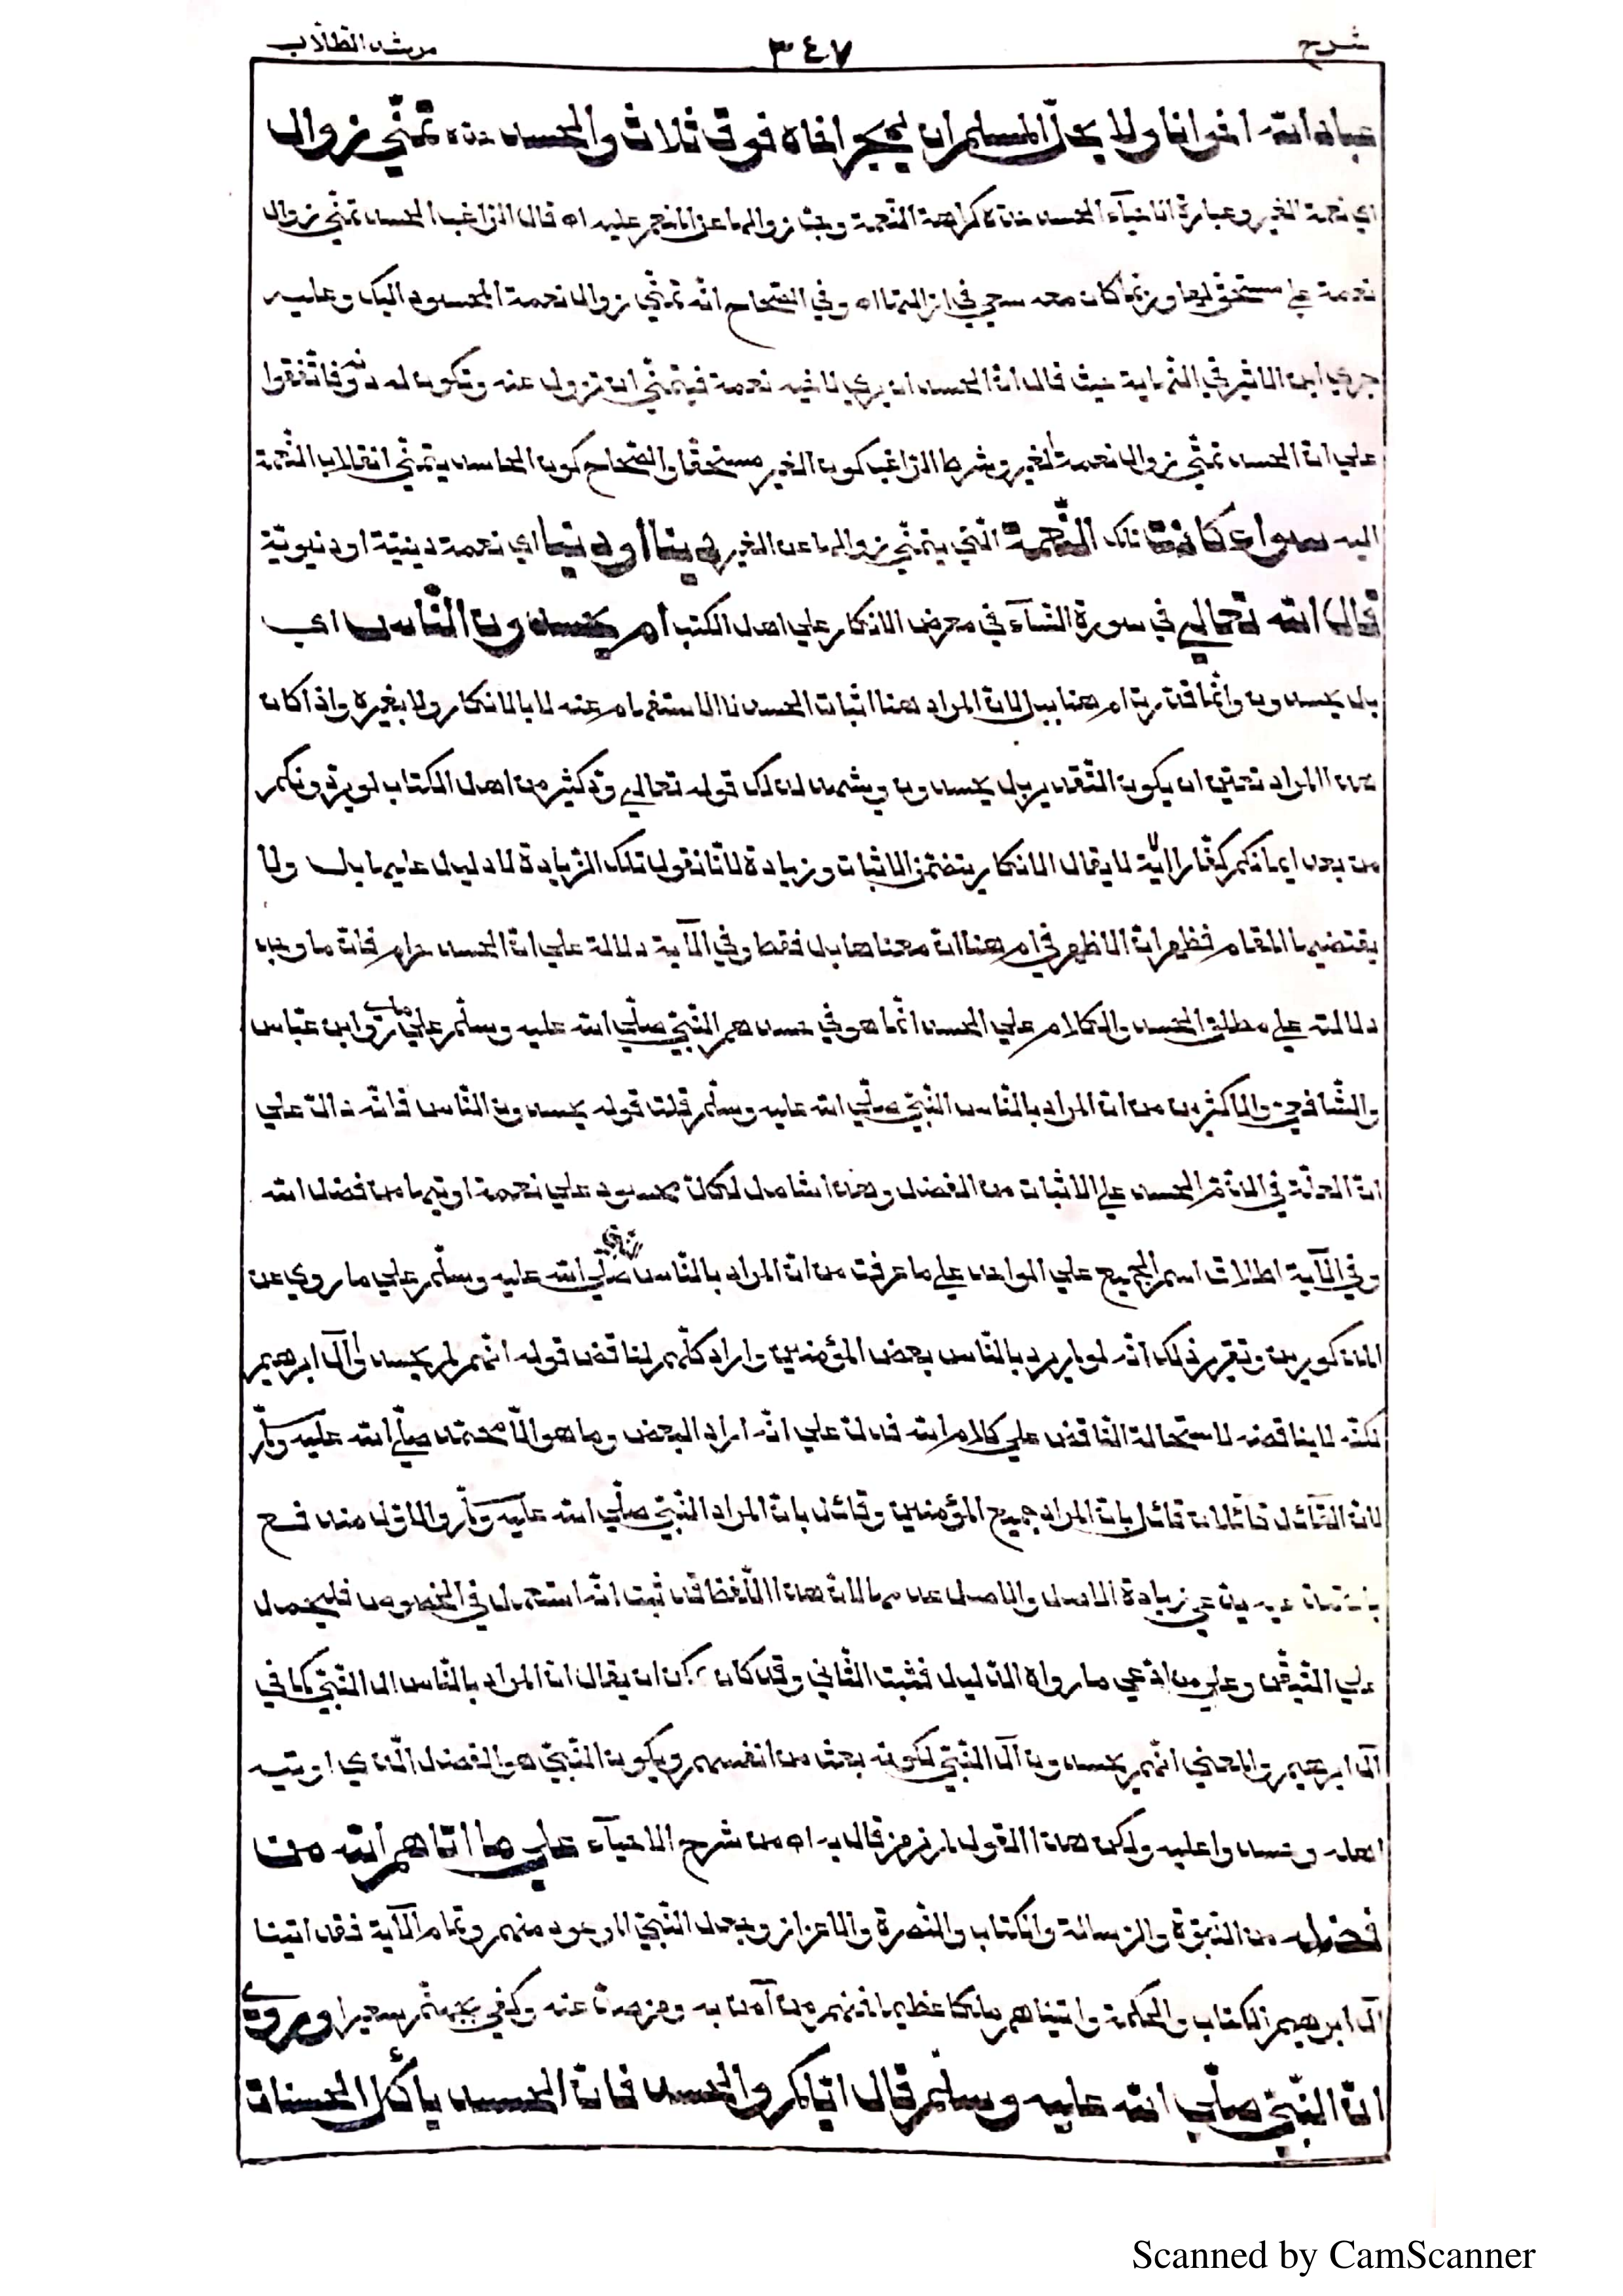 شرح ٣٤٧ مرشد الطلاب
عباد الله اخوانا ولا يحل لمسلم ان يهجر اخاه فوق ثلاث والحسد حده تمني زوال
اي نعمة الغير وعبارة الاحياء الحسد حده كراهة النعمة وحب زوالها عن المنعم عليه اه قال الراغب الحسد تمني زوال
نعمة على مستحق لها وربما كان معه سعي في ازالتها اه وفي الصحاح انه تمني زوال نعمة المحسود اليك وعليه
جري ابن الاثير في النهاية حيث قال ان الحسد ان يري لاخيه نعمة فيتمني ان تزول عنه وتكون له دونه فاتفقوا
علي ان الحسد تمني زوال نعمة الغير وشرط الراغب كون الغير مستحقا والصحاح كون الحاسد يتمني انقلاب النعمة
اليه سواء كانت تلك النعمة التي يتمني زوالها عن الغير دينا او دنيا اي نعمة دينية او دنيوية
قال الله تعالي في سورة النساء في معرض الانكار علي اهل الكتب ام يحسدون الناس اي
بل يحسدون وانما قدرت ام هنا ببل لان المراد هنا اثبات الحسد لا الاستفهام عنه لا بالانكار ولا بغيره واذا كان
هذا المراد تعين ان يكون التقدير بل يحسدون ويشهد لذلك قوله تعالي ود كثير من اهل الكتاب لو يردونكم
من بعد ايمانكم كفارا الاية لا يقال الانكار يتضمن الاثبات وزيادة لانا نقول تلك الزيادة لا دليل عليها بل ولا
يقتضيها المقام فظهر ان الاظهر في ام هنا ان معناها بل فقط وفي الآية دلالة علي ان الحسد حرام فان ما وجه
دلالته علي مطلق الحسد والكلام علي الحسد انما هو في حسدهم النبي صلي الله عليه وسلم علي ما روا ابن عباس
والشافعي والاكثرين من ان المراد بالناس النبي صلي الله عليه وسلم قلت قوله يحسدون الناس فانه دال علي
ان العلة في الذم الحسد علي الاثبات من الفضل وهذا شامل لكل محسود علي نعمة اوتيها من فضل الله
وفي الآية اطلاق اسم الجميع علي الواحد علي ما عرفت من ان المراد بالناس صلي الله عليه وسلم علي ما روي عن
المذكورين وتقرير ذلك انه لو لم يرد بالناس بعض المؤمنين واراد كلهم لناقض قوله انهم لم يحسدوا آل ابرهيم
لكنه لا يناقضه لاستحالة التناقض علي كلام الله فدل علي انه اراد البعض وما هو الا محمد صلي الله عليه وسلم
لان القائل قائلان قائل بان المراد جميع المؤمنين وقائل بان المراد النبي صلي الله عليه وسلم والاول مندفع
زيادة الاصل والاصل عدمها لان هذا اللفظ قد ثبت انه استعمل في الخصوص فليحمل
علي المتيقن وعلي من ادعي ما رواه الدليل فثبت الثاني وقد كان يمكن ان يقال ان المراد بالناس ال النبي كما في
آل ابرهيم والمعني انهم يحسدون آل النبي لكونه بعث من انفسهم ويكون النبي هو الفضل الذي اوتيه
اهله وحسدوا عليه ولكن هذا القول لم نر من قال به اه من شرح الاحياء علي ما اتاهم الله من
فضله من النبوة والرسالة والكتاب والنصرة والاعزاز وجعل النبي الموعود منهم وتمام الآية فقد اتينا
آل ابرهيم الكتاب والحكمة واتيناهم ملكا عظيما فمنهم من آمن به ومنهم من صد عنه وكفي بجهنم سعيرا وروي
ان النبي صلي الله عليه وسلم قال اياكم والحسد فان الحسد يأكل الحسنات
Scanned by CamScanner